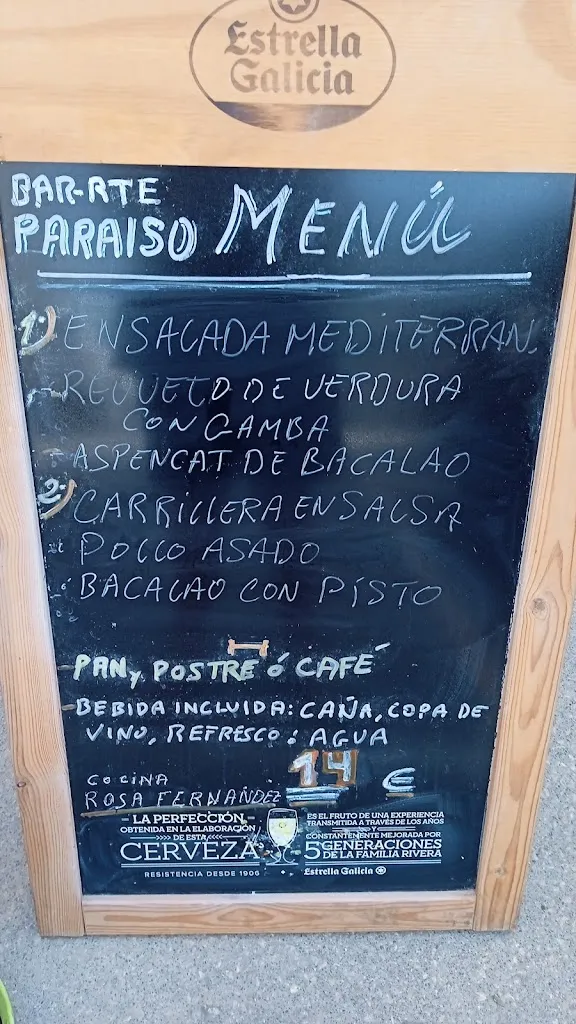 Estrella
Galicia
BAR-RTE
PARAISO MENÚ
1) ENSALADA MEDITERRAN.
- REVUELTO DE VERDURA
CON GAMBA
- ASPENCAT DE BACALAO
2-) CARRILLERA EN SALSA
POLLO ASADO
BACALAO CON PISTO
- PAN y POSTRE ó CAFÉ
- BEBIDA INCLUIDA: CAÑA, COPA DE
VINO, REFRESCO: AGUA
COCINA
ROSA FERNANDEZ
14 €
LA PERFECCIÓN
OBTENIDA EN LA ELABORACIÓN
>>>> DE ESTA <<<<
CERVEZA
RESISTENCIA DESDE 1906
ES EL FRUTO DE UNA EXPERIENCIA
TRANSMITIDA A TRAVÉS DE LOS AÑOS
Y
CONSTANTEMENTE MEJORADA POR
5 GENERACIONES
DE LA FAMILIA RIVERA
Estrella Galicia